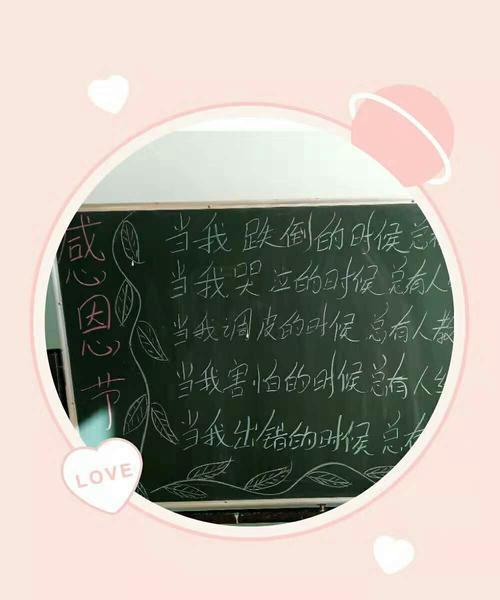 感恩节
当我跌倒的时候总
当我哭泣的时候总有人
当我调皮的时候总有人教
当我害怕的时候总有人
当我出错的时候总有
LOVE